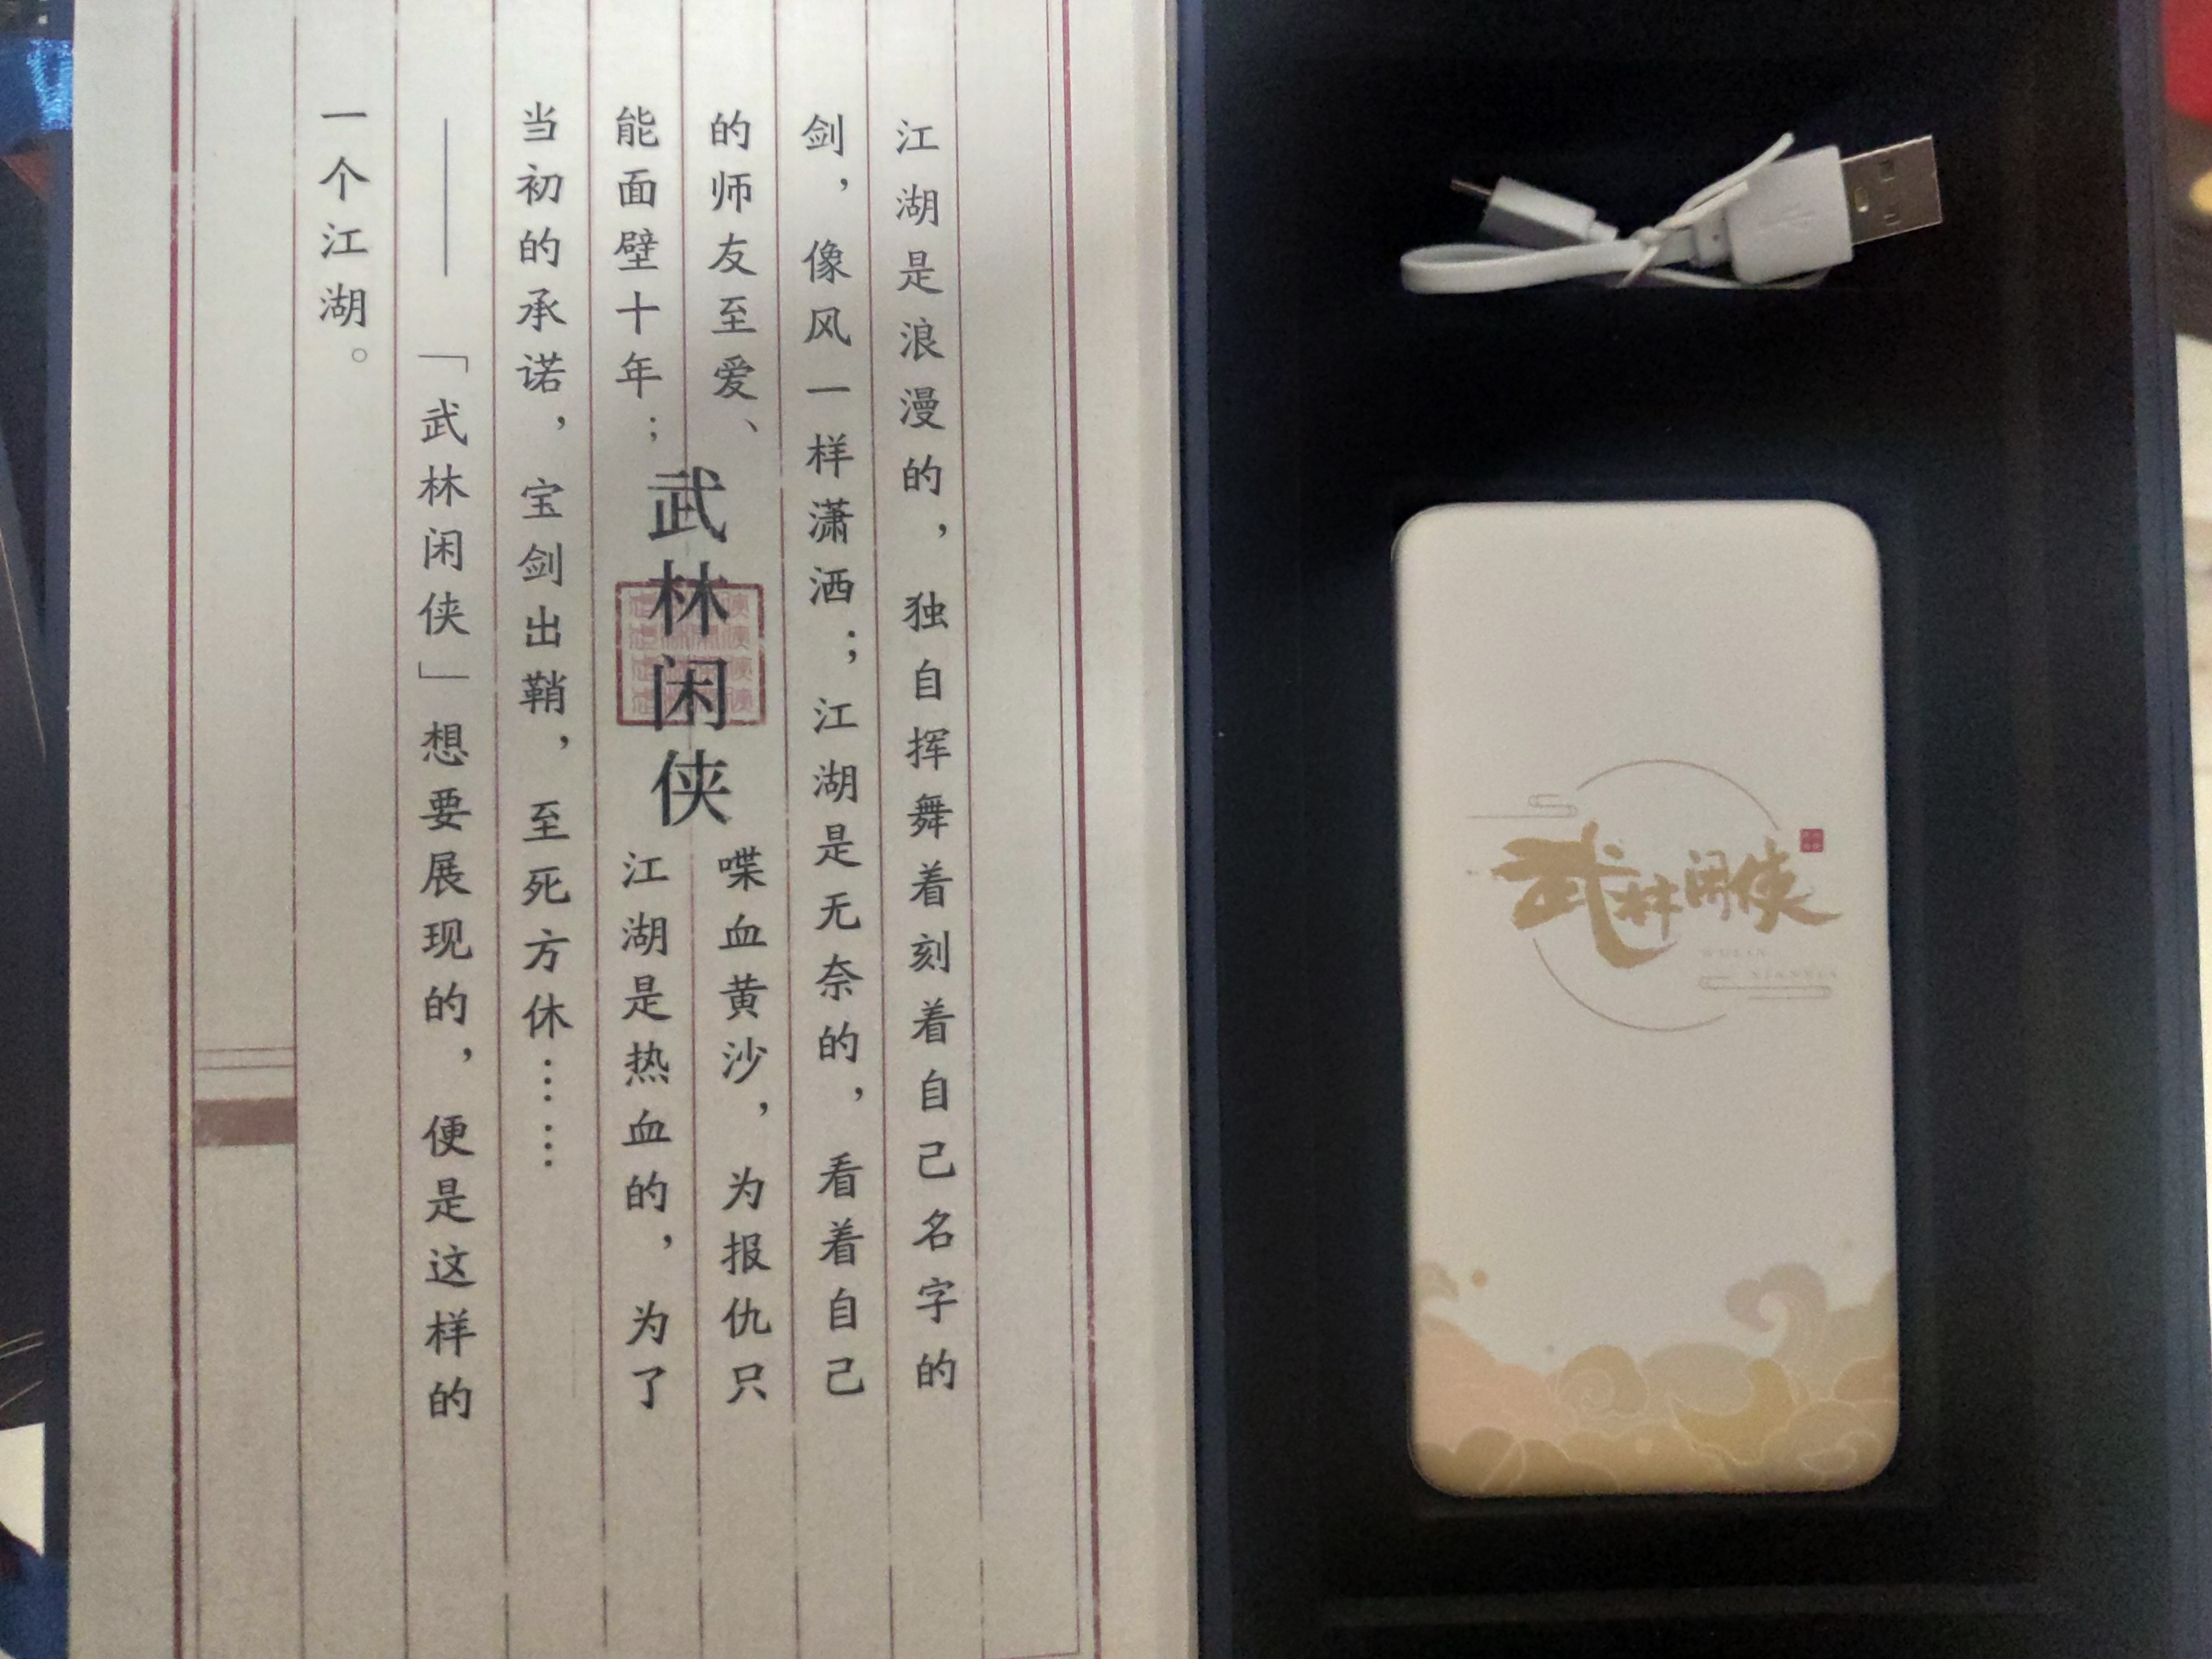 江湖是浪漫的，独自挥舞着刻着自己名字的
剑，像风一样潇洒；江湖是无奈的，看着自己
的师友至爱、喋血黄沙，为报仇只
能面壁十年；江湖是热血的，为了
当初的承诺，宝剑出鞘，至死方休……
——「武林闲侠」想要展现的，便是这样的
一个江湖。
武林闲侠
武林闲侠
WULIN
XIANXIA